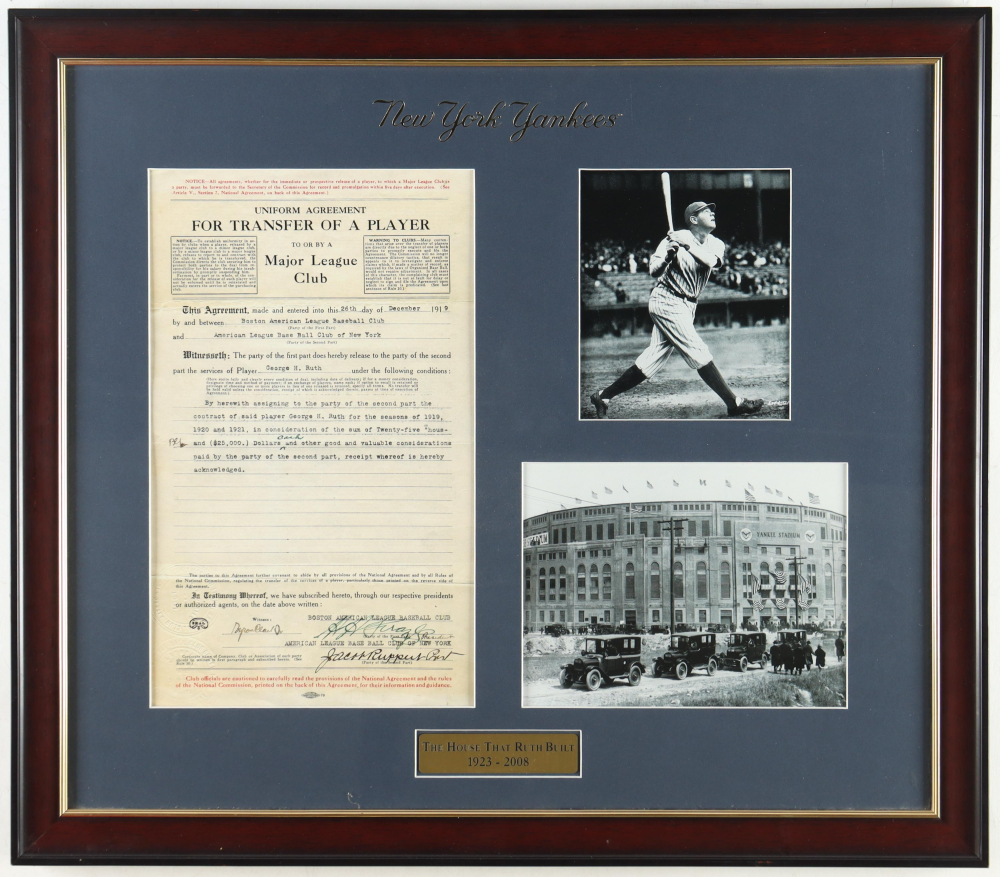 New York Yankees
NOTICE.—All agreements, whether for the immediate or prospective release of a player, to which a Major League Club is
a party, must be forwarded to the Secretary of the Commission for record and promulgation within five days after execution. (See
Article V., Section 7, National Agreement, on back of this Agreement.)
UNIFORM AGREEMENT
FOR TRANSFER OF A PLAYER
TO OR BY A
Major League
Club
This Agreement, made and entered into this 26th day of December 1919
by and between Boston American League Baseball Club
(Party of the First Part)
and American League Base Ball Club of New York
(Party of the Second Part)
Witnesseth: The party of the first part does hereby release to the party of the second
part the services of Player George H. Ruth under the following conditions:
By herewith assigning to the party of the second part the
contract of said player George H. Ruth for the seasons of 1919,
1920 and 1921, in consideration of the sum of Twenty-five Thous-
cash
and ($25,000.) Dollars and other good and valuable considerations
paid by the party of the second part, receipt whereof is hereby
acknowledged.
The parties to this Agreement further covenant to abide by all provisions of the National Agreement and by all Rules of
the National Commission, regulating the transfer of the services of a player, particularly those printed on the reverse side of
this Agreement.
In Testimony Whereof, we have subscribed hereto, through our respective presidents
or authorized agents, on the date above written:
Witness:
BOSTON AMERICAN LEAGUE BASEBALL CLUB
SEAL
AMERICAN LEAGUE BASE BALL CLUB OF NEW YORK
Jacob Ruppert
(Party of the Second Part)
Club officials are cautioned to carefully read the provisions of the National Agreement and the rules
of the National Commission, printed on the back of this Agreement, for their information and guidance.
YANKEE STADIUM
THE HOUSE THAT RUTH BUILT
1923 - 2008